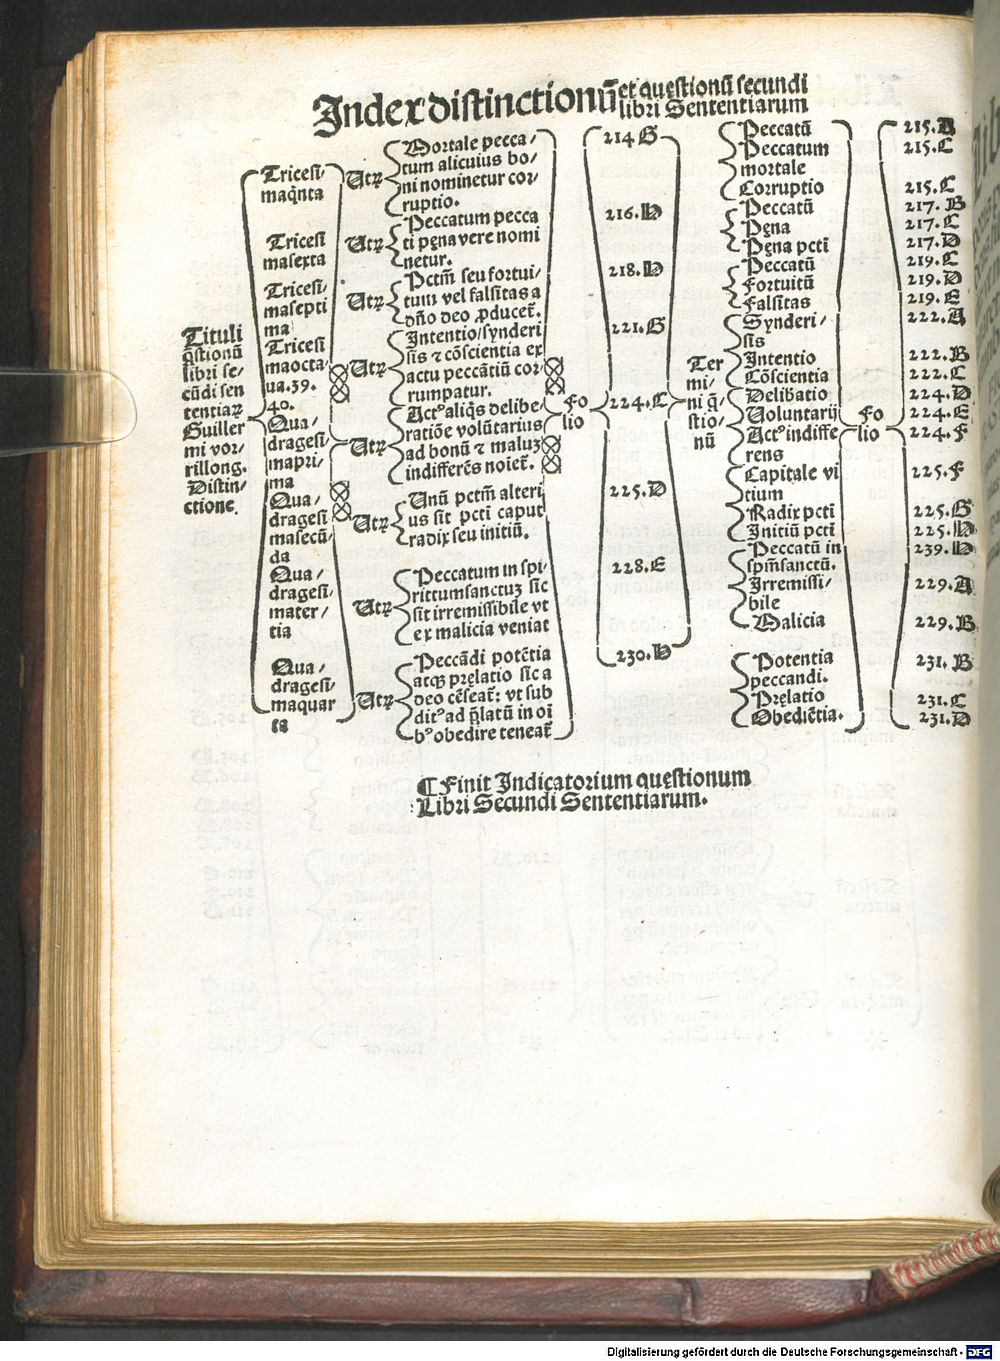 Index distinctionū et questionū secundi
libri Sententiarum
Tituli
q̄stionū
libri se-
cūdi sen
tentiaꝝ
Guiller
mi vor-
rillong.
Distin-
ctione.
Tricesi-
maq̄nta
Tricesi
masexta
Tricesi-
masepti
ma
Tricesi
maocta-
ua.39.
40.
Qua-
dragesi-
mapri-
ma
Qua-
dragesi
masecū-
da
Qua-
dragesi-
mater-
tia
Qua-
dragesi-
maquar
ta
Utꝝ
Mortale pecca-
tum alicuius bo-
ni nominetur cor-
ruptio.
Utꝝ
Peccatum pecca
ti pęna vere nomi
netur.
Utꝝ
Pctm̄ seu fortui-
tum vel falsitas a
dn̄o deo ꝓducet̄.
Utꝝ
Intentio/synderi
sis ⁊ cōscientia ex
actu peccātiū cor-
rumpatur.
Utꝝ
Actꝰ aliq̄s delibe-
ratiōe volūtarius
ad bonū ⁊ maluꝫ
indifferēs noiet̄.
Utꝝ
Unū pctm̄ alteri
us sit pcti caput
radix seu initiū.
Utꝝ
Peccatum in spi-
rittumsanctuꝫ sic
sit irremissibile vt
ex malicia veniat
Utꝝ
Peccādi potētia
atqꝫ pręlatio sic a
deo cēseat̄: vt sub
ditꝰ ad p̄latū in oi
bꝰ obedire teneat̄
Fo
lio
214.G
216.H
218.H
221.G
224.C
225.D
228.E
230.H
Ter
mi-
ni q̄-
stio-
nū
Peccatū
Peccatum
mortale
Corruptio
Peccatū
Pęna
Pęna pcti
Peccatū
Fortuitū
Falsitas
Synderi-
sis
Intentio
Cōscientia
Delibatio
Voluntarij
Actꝰ indiffe
rens
Capitale vi
tium
Radix pcti
Initiū pcti
Peccatū in
spm̄sanctū.
Irremissi-
bile
Malicia
Potentia
peccandi.
Pręlatio
Obediētia.
Fo
lio
215.A
215.C
215.C
217.B
217.C
217.D
219.C
219.D
219.E
222.A
222.B
222.C
224.D
224.E
224.F
225.F
225.G
225.H
239.H
229.A
229.B
231.B
231.C
231.D
⸿ Finit Indicatorium questionum
Libri Secundi Sententiarum.
Digitalisierung gefördert durch die Deutsche Forschungsgemeinschaft - DFG